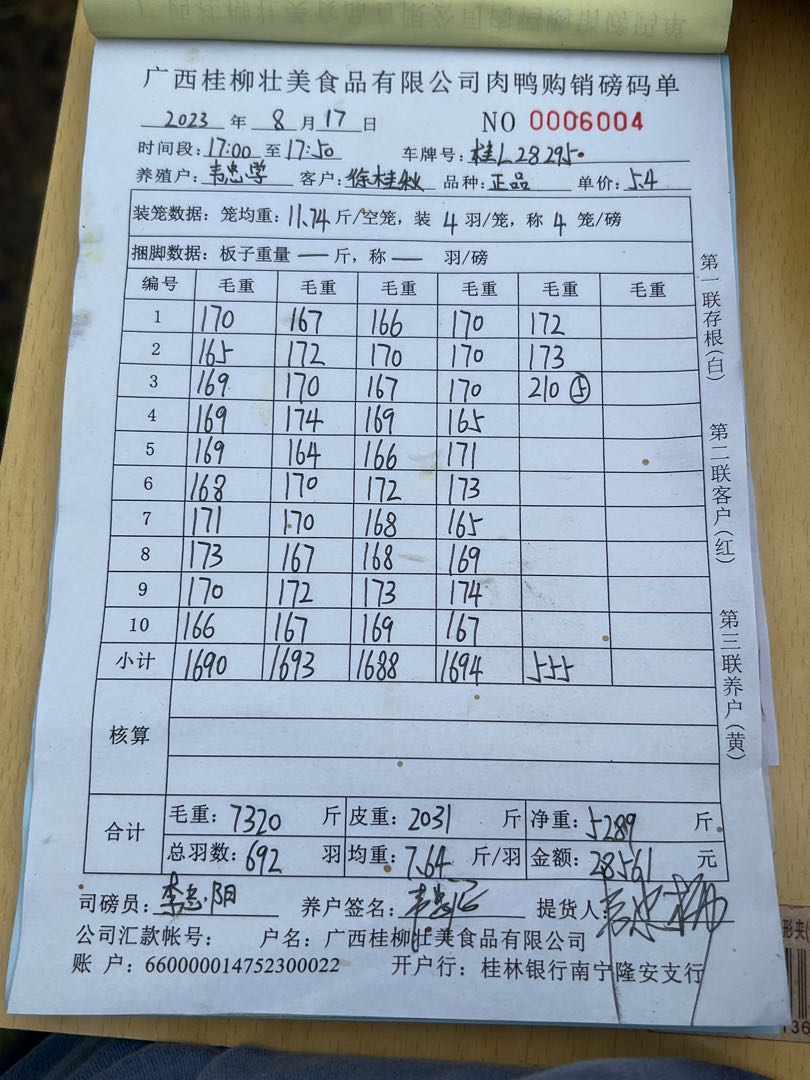 广西桂柳壮美食品有限公司肉鸭购销磅码单
2023 年 8 月 17 日 NO 0006004
时间段: 17:00 至 17:50 车牌号: 桂L28295
养殖户: 韦忠学 客户: 徐桂秋 品种: 正品 单价: 5.4
装笼数据: 笼均重: 11.74 斤/空笼, 装 4 羽/笼, 称 4 笼/磅
捆脚数据: 板子重量 — 斤, 称 — 羽/磅
编号 毛重 毛重 毛重 毛重 毛重 毛重
1 170 167 166 170 172
2 165 172 170 170 173
3 169 170 167 170 210 ⑤
4 169 174 169 165
5 169 164 166 171
6 168 170 172 173
7 171 170 168 165
8 173 167 168 169
9 170 172 173 174
10 166 167 169 167
小计 1690 1693 1688 1694 555
核算
合计 毛重: 7320 斤 皮重: 2031 斤 净重: 5289 斤
总羽数: 692 羽 均重: 7.64 斤/羽 金额: 28561 元
司磅员: 李忠阳 养户签名: 提货人:
公司汇款帐号: 户名: 广西桂柳壮美食品有限公司
账 户: 660000014752300022 开户行: 桂林银行南宁隆安支行
第一联存根(白)
第二联客户(红)
第三联养户(黄)